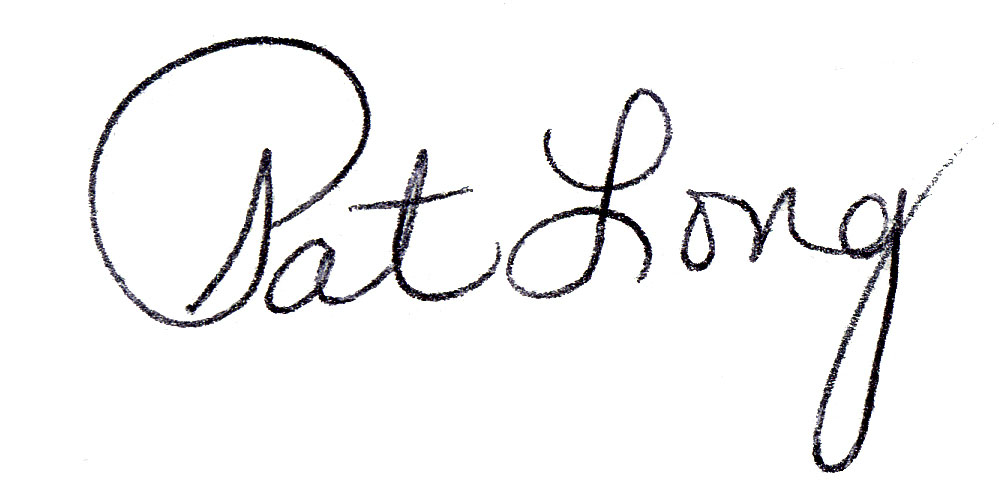 Pat Long